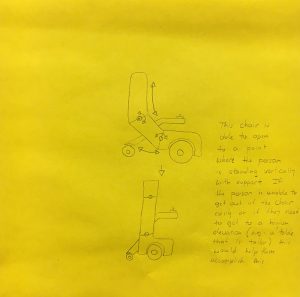 This chair is
able to open
to a point
where the person
is standing vertically
with support. If
the person is unable to
get out of the chair
easily or if they need
to get to a higher
elevation (e.g. a table
that is taller) this
would help them
accomplish this